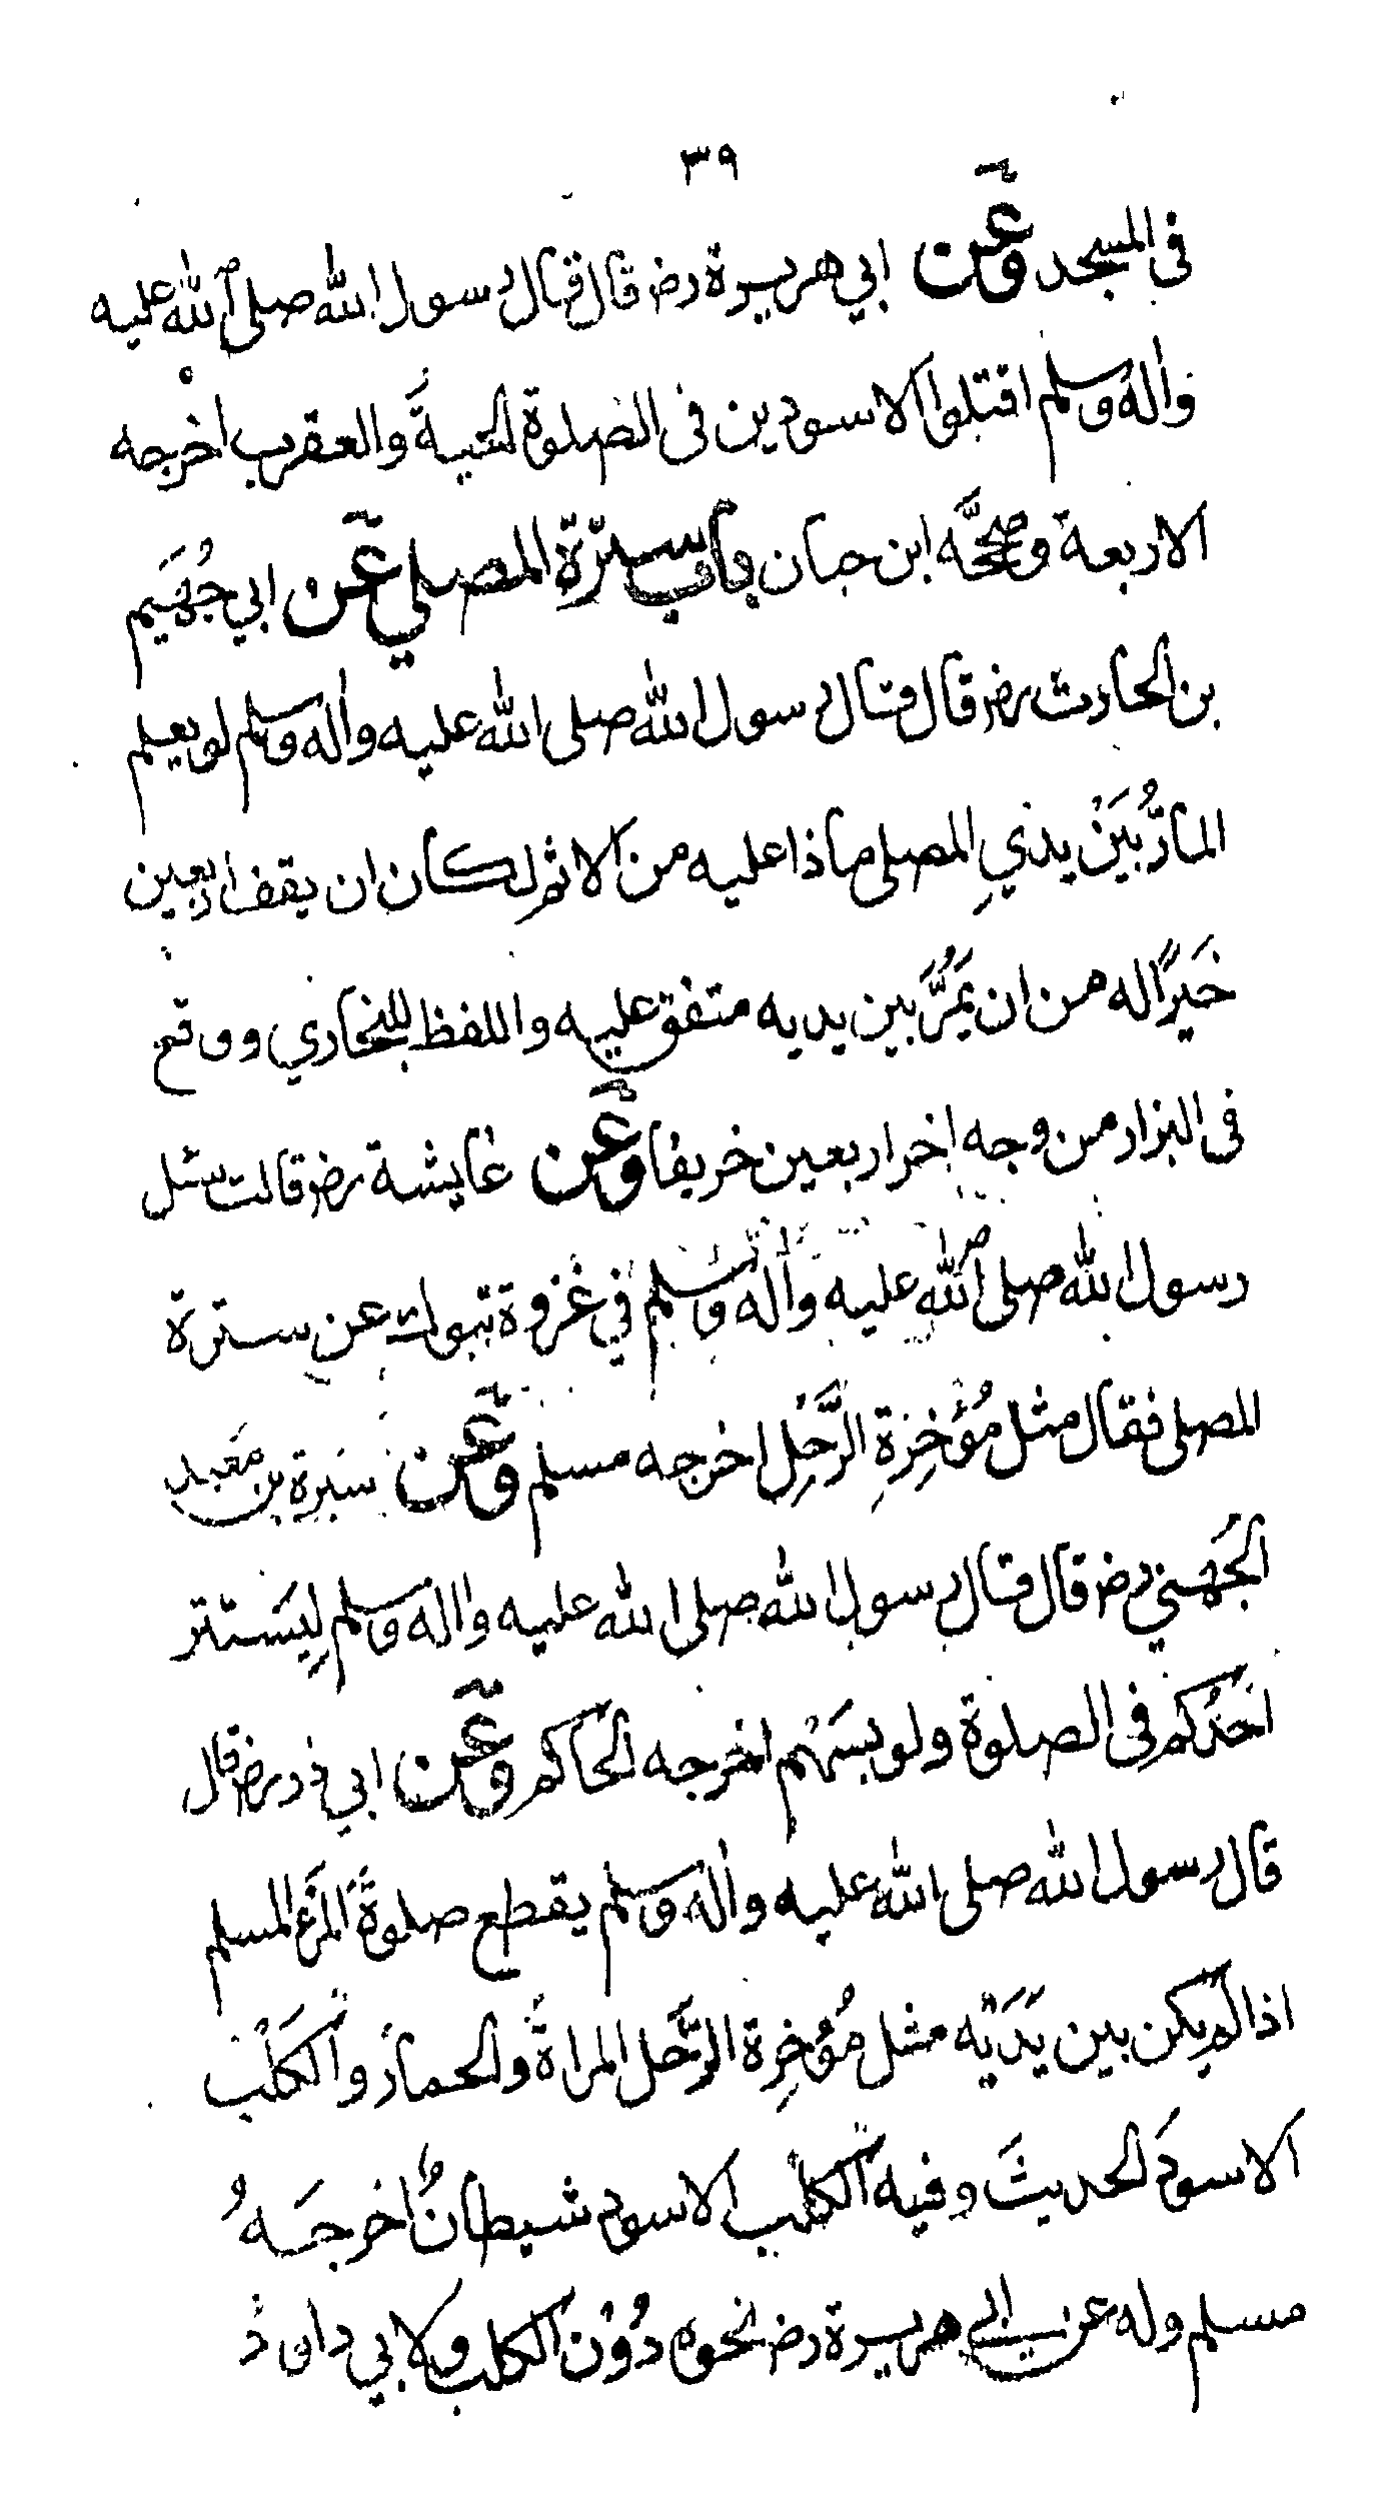 ٣٩
في المسجد وعن ابي هريرة رض قال قال رسول الله صلى الله عليه
واله وسلم اقتلوا الاسودين في الصلوة الحيةَ والعقرب اخرجه
الاربعة وصححَّه ابن حبان باب سترة المصلي عن ابي جُهَيم
بن الحارث رض قال قال رسول الله صلى الله عليه واله وسلم لو يعلم
المارُّ بَيَنْ يدَيِ المصلى ماذا عليه من الاثم لكان ان يقف اربعين
خَيرًا له من ان يَمُرَّ بين يديه متفق عليه واللفظ للبخاري ووقع
في البزار من وجه اخر اربعين خريفا وعن عايشة رض قالت سئل
رسول الله صلى الله عليه واله وسلم في غزوة تبوك عن سترة
المصلى فقال مثل مُؤْخِرَةِ الرَّحْلِ اخرجه مسلم وعن سَبْرة بن مَعْبد
الجُهَني رض قال قال رسول الله صلى الله عليه واله وسلم لِيَسْتتر
احَدُكم في الصلوة ولو بسَهْم اخرجه الحاكم وعن ابي ذر رض قال
قال رسول الله صلى الله عليه واله وسلم يقطع صلوةَ المَرْءِ المسلم
اذا لم يكن بين يَدَيْه مثل مُؤْخِرة الرَّحْل المراةُ والحمارُ والكَلْب
الاسودُ الحديثَ وفيه الكلْب الاسود شيطانٌ اخرجَهُ
مسلم وله عن ابي هريرة رض نحوه دُوْن الكلب ولابي داودَ